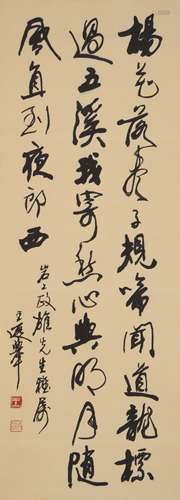 楊花落盡子規啼聞道龍標
過五溪我寄愁心與明月随
風直到夜郎西
岩政雄先生雅屬
王遐舉